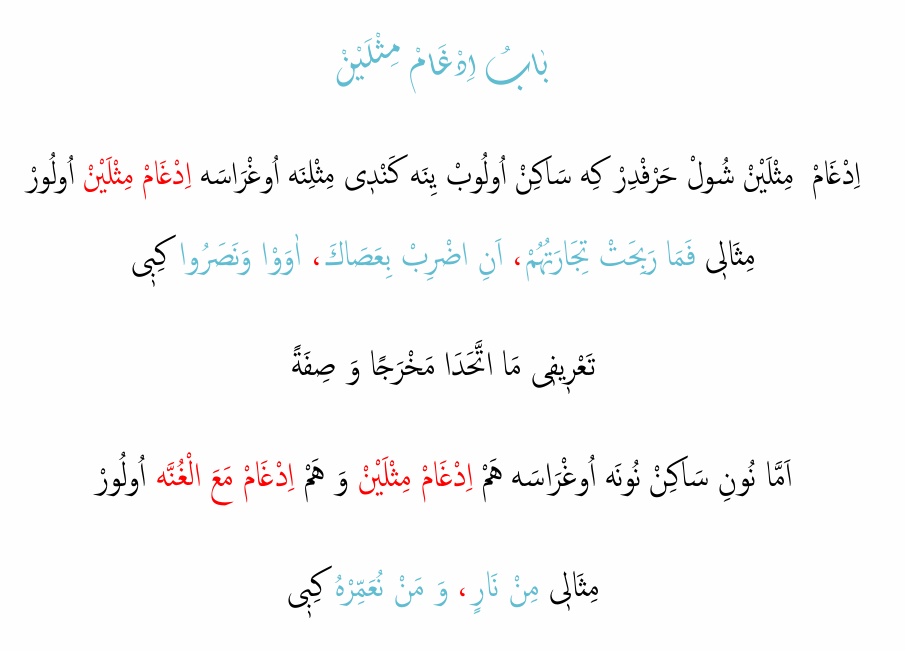 بَابُ اِدْغَامْ مِثْلَيْنْ
اِدْغَامْ مِثْلَيْنْ شُولْ حَرْفْدِرْ كِه سَاكِنْ اُولُوبْ يِنَه كَنْدٖى مِثْلِنَه اُوغْرَاسَه اِدْغَامْ مِثْلَيْنْ اُولُورْ
مِثَالٖى فَمَا رَبِحَتْ تِجَارَتُهُمْ، اَنِ اضْرِبْ بِعَصَاكَ، اٰوَوْا وَنَصَرُوا كِبٖى
تَعْرٖيفٖى مَا اتَّحَدَا مَخْرَجًا وَ صِفَةً
اَمَّا نُونِ سَاكِنْ نُونَه اُوغْرَاسَه هَمْ اِدْغَامْ مِثْلَيْنْ وَ هَمْ اِدْغَامْ مَعَ الْغُنَّه اُولُورْ
مِثَالٖى مِنْ نَارٍ، وَ مَنْ نُعَمِّرْهُ كِبٖى